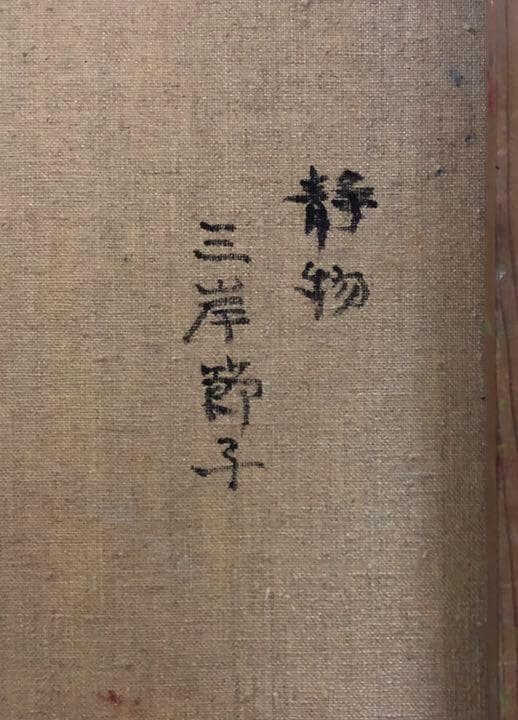 静物
三岸節子